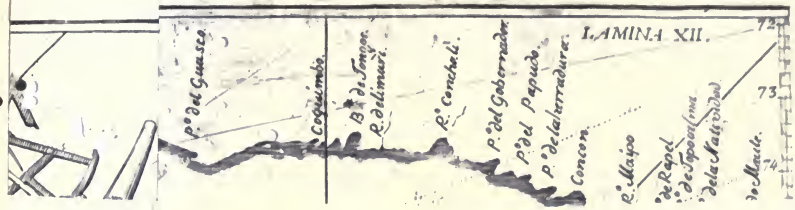 LAMINA XII.
72
73
P.º del Guasco.
Coquimbo.
B.ª de Tongoi
R. de limari.
R.º Conchali.
P.º del Gobernador.
P.º del Papudo.
P.º de la herradura.
Concon.
R.º Maipo
º de Rapel
º de Topocalma.
º de la Natividad.
de Maule.